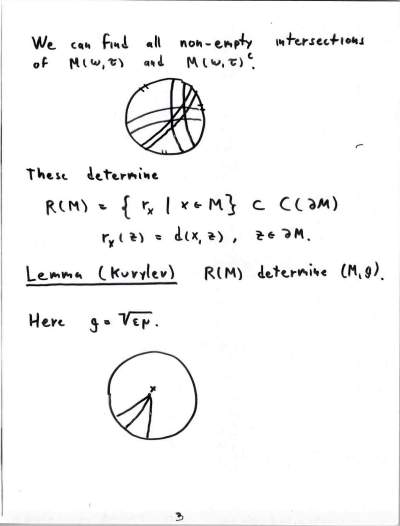 We can find all non-empty intersections
of M(ω,τ) and M(ω,τ)ᶜ.
These determine
R(M) = { rₓ | x ∈ M } ⊂ C(∂M)
rₓ(z) = d(x,z), z ∈ ∂M.
Lemma (Kurylev) R(M) determine (M,g).
Here g = √εμ.
x
3